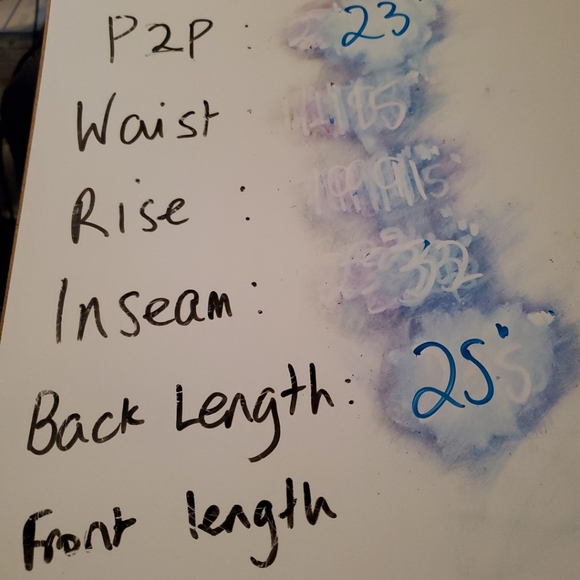 P2P : 23"
Waist :
Rise :
Inseam :
Back Length : 25"
Front length